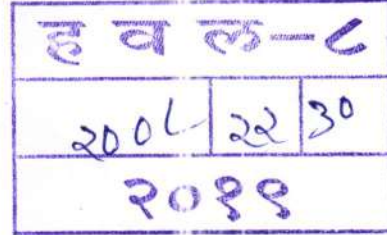 ह व ल-८
२००८ २२ ३०
२०१९